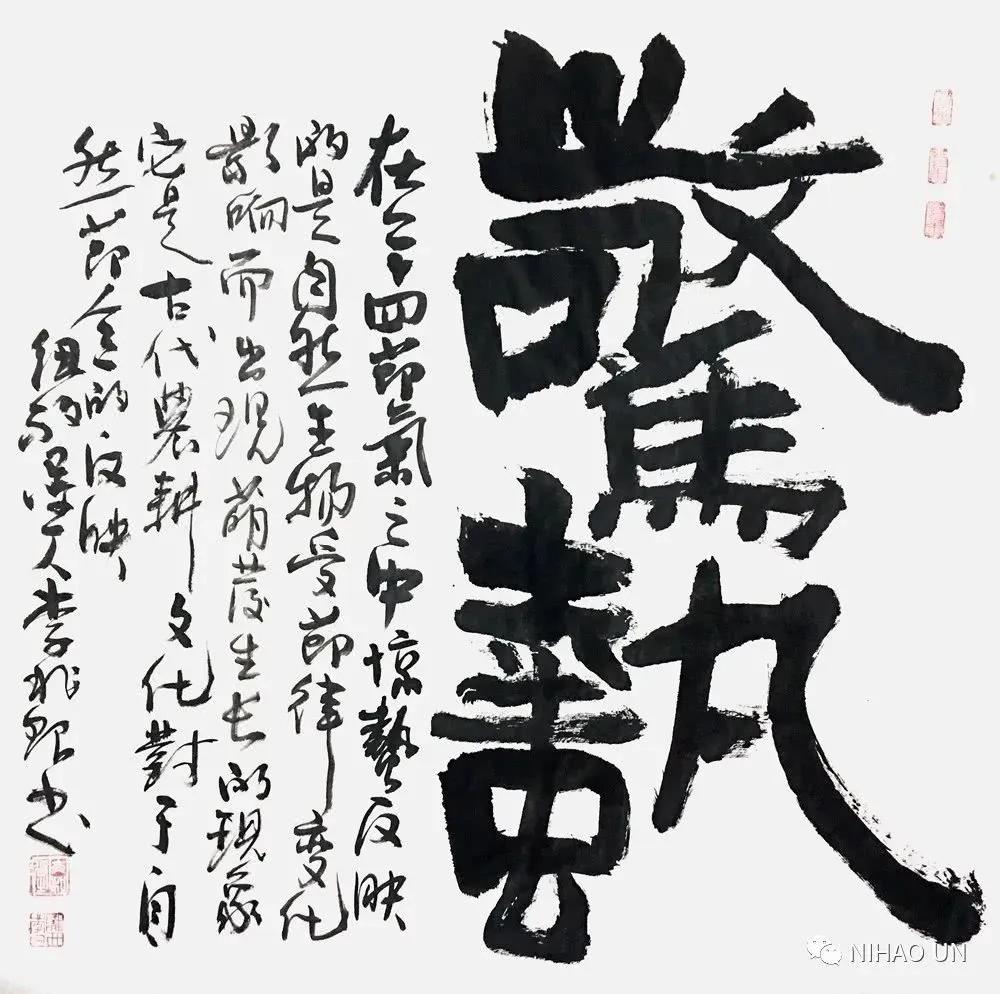 驚蟄
在二十四節氣之中惊蟄反映
的是自然生物受節律变化
影响而出現萌發生长的現象
它是古代農耕文化對于自
然節令的反映
纽约人李兆银书
NIHAO UN